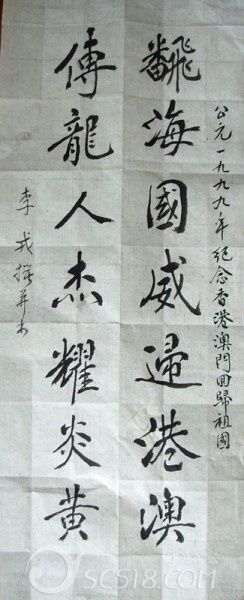 公元一九九九年纪念香港澳門回歸祖國
飜海國威歸港澳
傳龍人杰耀炎黃
李戎撰并书
SC518.com